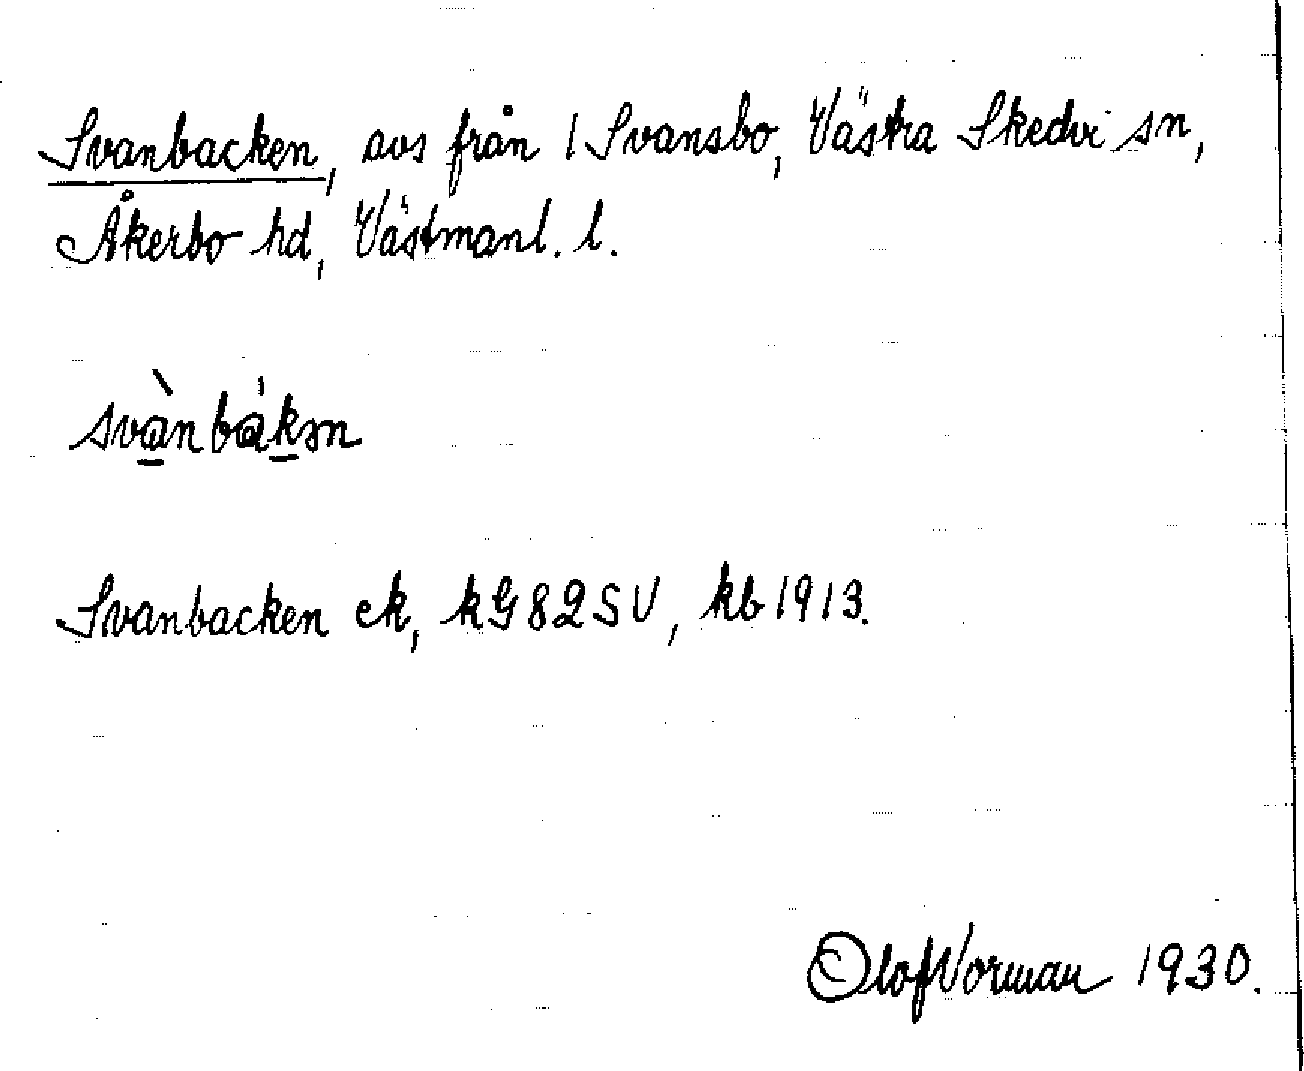 Svanbacken, avs från 1 Svansbo, Västra Skedvi sn,
Åkerbo hd, Västmanl. l.
svànbákən
Svanbacken ek, kG82SV, kb 1913.
Olof Vorman 1930.